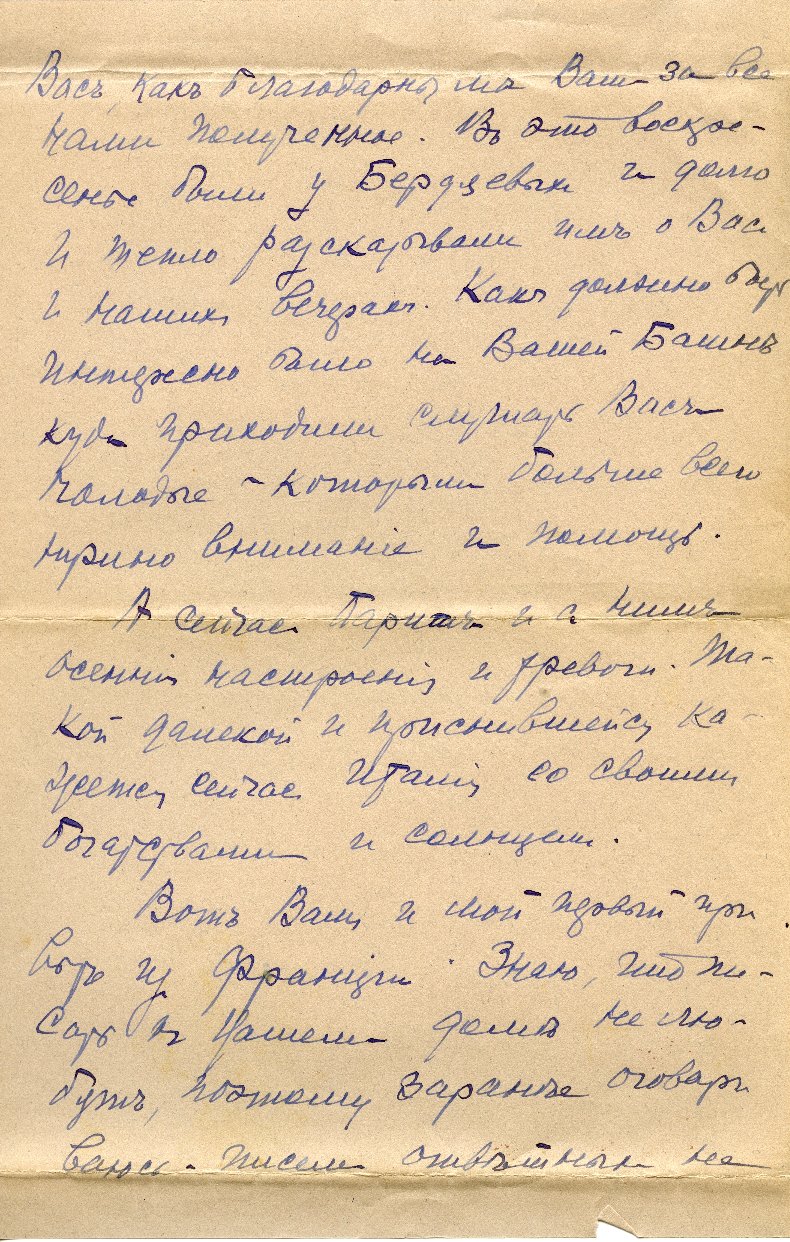 Васъ, какъ благодарны мы Вамъ за все
нами полученное. Въ это воскре-
сенье были у Бердяевыхъ и долго
и тепло разсказывали имъ о Васъ
и нашихъ вечерахъ. Какъ должно быть
интересно было на Вашей Башнѣ
куда приходили слушать Васъ
молодые – которымъ больше всего
нужно вниманіе и помощь.
А сейчасъ Парижъ и съ нимъ
осеннія настроенія и тревоги. Та-
кой далекой и приснившейся ка-
жется сейчасъ Италія со своими
богатствами и солнцемъ.
Вотъ Вамъ и мой первый при
вѣтъ изъ Франціи. Знаю, что пи-
сать въ Вашемъ домѣ не лю-
бятъ, поэтому заранѣе оговари
ваюсь – писемъ отвѣтныхъ не